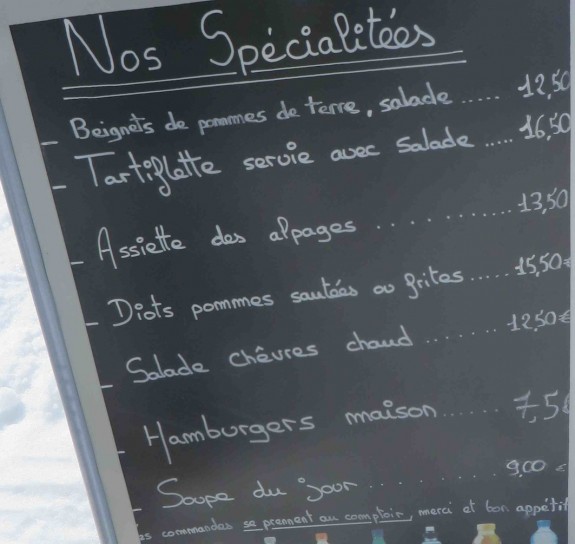 Nos Spécialitées
- Beignets de pommes de terre, salade ..... 12,50
- Tartiflette servie avec salade ..... 16,50
- Assiette des alpages ............ 13,50
- Diots pommes sautées ou frites ..... 15,50€
- Salade chêvres chaud ....... 12,50€
- Hamburgers maison ...... 7,50
- Soupe du jour ......... 9,00 €
es commandes se prennent au comptoir, merci et bon appétit